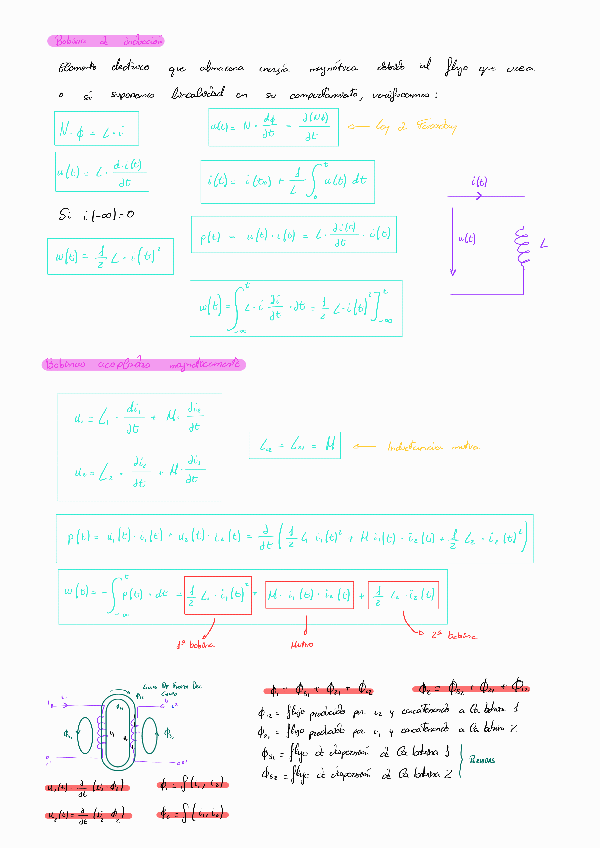 Bobina de inducción
Elemento electrico que almacena energía magnética debido al flujo que crea
o si suponemos linealidad en su comportamiento, verificamos:
N · ϕ = L · i
u(t) = N · dϕ/dt = d(Nϕ)/dt ← Ley de Faraday
u(t) = L · d·i(t)/dt
i(t) = i(t₀) + 1/L · ∫₀ᵗ u(t) dt
Si i(-∞)=0
p(t) = u(t) · i(t) = L · di(t)/dt · i(t)
w(t) = 1/2 L · i(t)²
w(t) = ∫₋∞ᵗ L · i · di/dt · dt = 1/2 L · i(t)² ]₋∞ᵗ
i(t)
u(t)
L
Bobinas acopladas magneticamente
u₁ = L₁ · di₁/dt + M · di₂/dt
L₁₂ = L₂₁ = M ← Inductancia mutua
u₂ = L₂ · di₂/dt + M · di₁/dt
p(t) = u₁(t) · i₁(t) + u₂(t) · i₂(t) = d/dt ( 1/2 L₁ i₁(t)² + M i₁(t) · i₂(t) + 1/2 L₂ · i₂(t)² )
w(t) = ∫₋∞ᵗ p(t) · dt = 1/2 L₁ · i₁(t)² + M · i₁(t) · i₂(t) + 1/2 L₂ · i₂(t)
1ª bobina
Mutuo
2ª bobina
ϕ₂ = ϕS₂ + ϕ₂₁ + ϕ₁₂
ϕ₁₂ = flujo producido por i₂ y concatenando a la bobina 1
ϕ₂₁ = flujo producido por i₁ y concatenando a la bobina 2
ϕS₁ = flujo de dispersión de la bobina 1
ϕS₂ = flujo de dispersión de la bobina 2
ϕ₁ = f(i₁, i₂)
ϕ₂ = f(i₁, i₂)